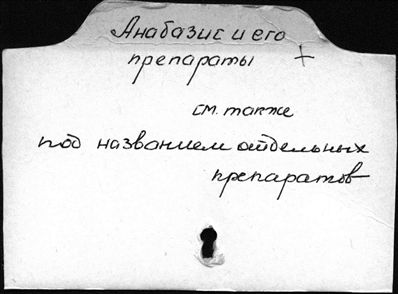 Анабазис и его
препараты +
см. также
под названием отдельных
препаратов